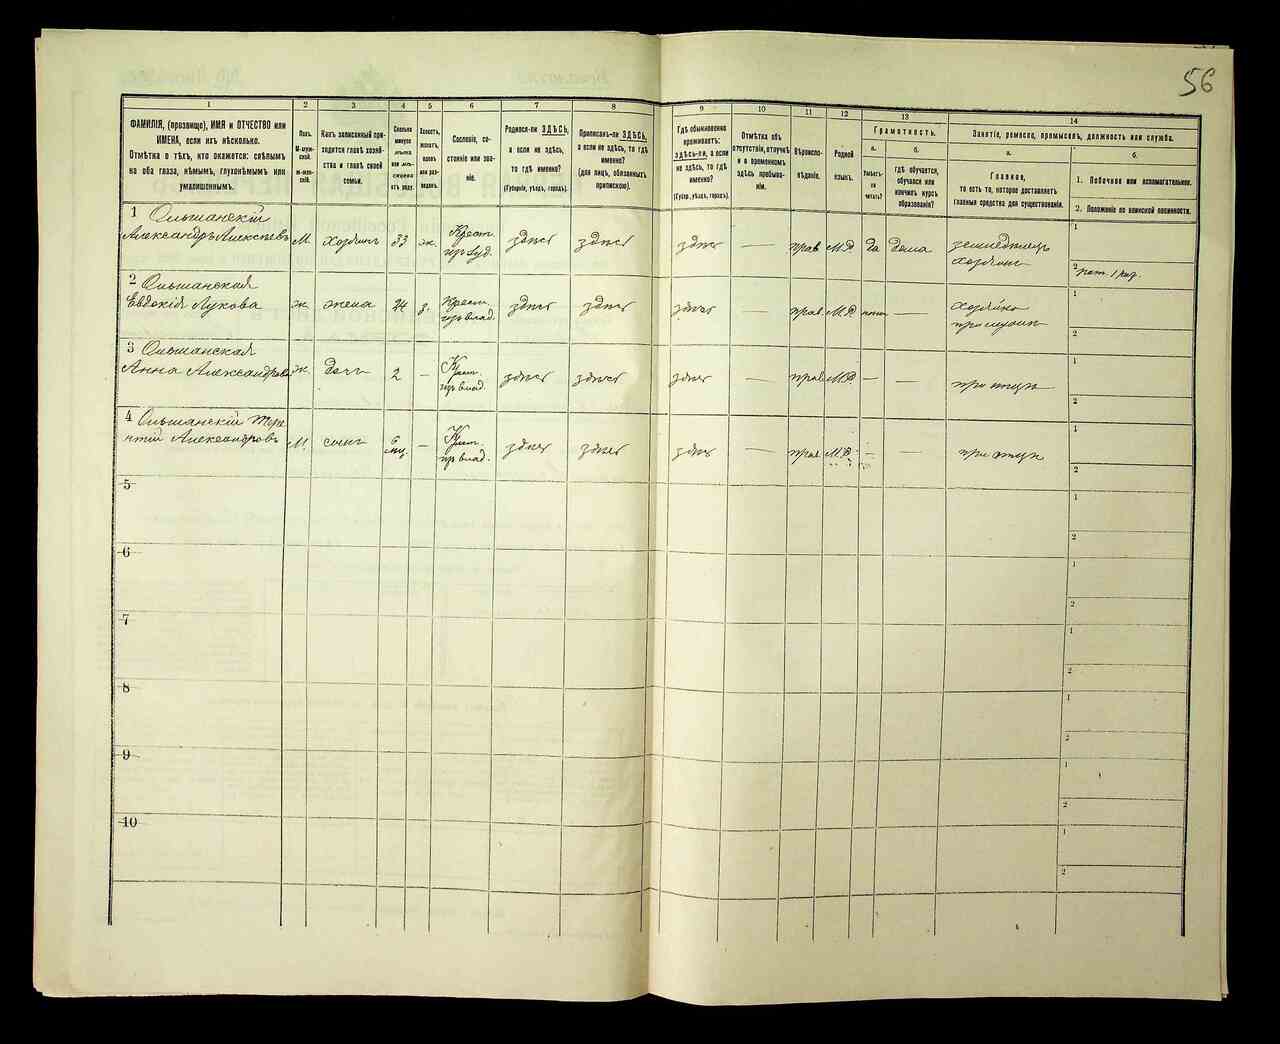 56
1
2
3
4
5
6
7
8
9
10
11
12
13
14
ФАМИЛІЯ, (прозвище), ИМЯ и ОТЧЕСТВО или
ИМЕНА, если ихъ нѣсколько.
Отмѣтка о тѣхъ, кто окажется: слѣпымъ
на оба глаза, нѣмымъ, глухонѣмымъ или
умалишеннымъ.
Полъ.
М-муж-
ской.
ж-жен-
скій.
Какъ записанный при-
ходится главѣ хозяй-
ства и главѣ своей
семьи.
Сколько
минуло
лѣтъ
или мѣ-
сяцевъ
отъ роду.
Холостъ,
женатъ,
вдовъ
или раз-
веденъ.
Сословіе, со-
стояніе или зва-
ніе.
Родился-ли ЗДѢСЬ,
а если не здѣсь,
то гдѣ именно?
(Губернія, уѣздъ, городъ).
Приписанъ-ли ЗДѢСЬ,
а если не здѣсь, то гдѣ
именно?
(для лицъ, обязанныхъ
припискою).
Гдѣ обыкновенно
проживаетъ:
ЗДѢСЬ-ли, а если
не здѣсь, то гдѣ
именно?
(Губер., уѣздъ, городъ).
Отмѣтка объ
отсутствіи, отлучкѣ
и о временномъ
здѣсь пребыва-
ніи.
Вѣроиспо-
вѣданіе.
Родной
языкъ.
Грамотность.
а.
Умѣетъ-
ли
читать?
б.
гдѣ обучается,
обучался или
кончилъ курсъ
образованія?
Занятіе, ремесло, промыселъ, должность или служба.
а.
Главное,
то есть то, которое доставляетъ
главныя средства для существованія.
б.
1. Побочное или вспомогательное.
2. Положеніе по воинской повинности.
1 Ольшанскій
Александръ Алексѣевъ М. хозяинъ 33 ж. Крест. здѣсь здѣсь здѣсь — прав М.Р. да дома земледѣлецъ
хозяинъ
1
2
2 Ольшанская
Евдокія Лукова ж. жена 24 з. Крест. здѣсь здѣсь здѣсь — прав. М.Р. — хозяйка
1
2
3 Ольшанская
Анна Александрова ж. дочь 2 — Крест. здѣсь здѣсь здѣсь — прав М.Р. — при отцѣ
1
2
4 Ольшанскій Тере
нтій Александровъ М. сынъ 6
мц. — Крест. здѣсь здѣсь здѣсь — прав М.Р. — — при отцѣ
1
2
5
1
2
6
1
2
7
1
2
8
1
2
9
1
2
10
1
2